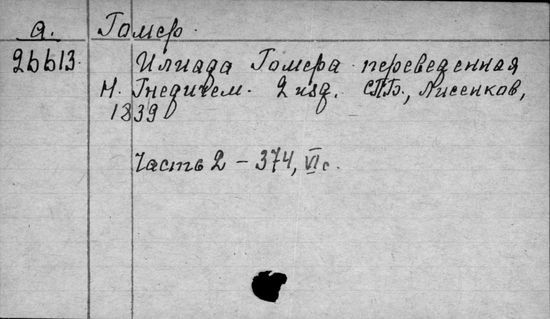 а. Гомер.
26613 Илиада Гомера переведенная
Н. Гнедичем. 2 изд. СПБ., Лисенков,
1839
Часть 2 – 374, VI с.